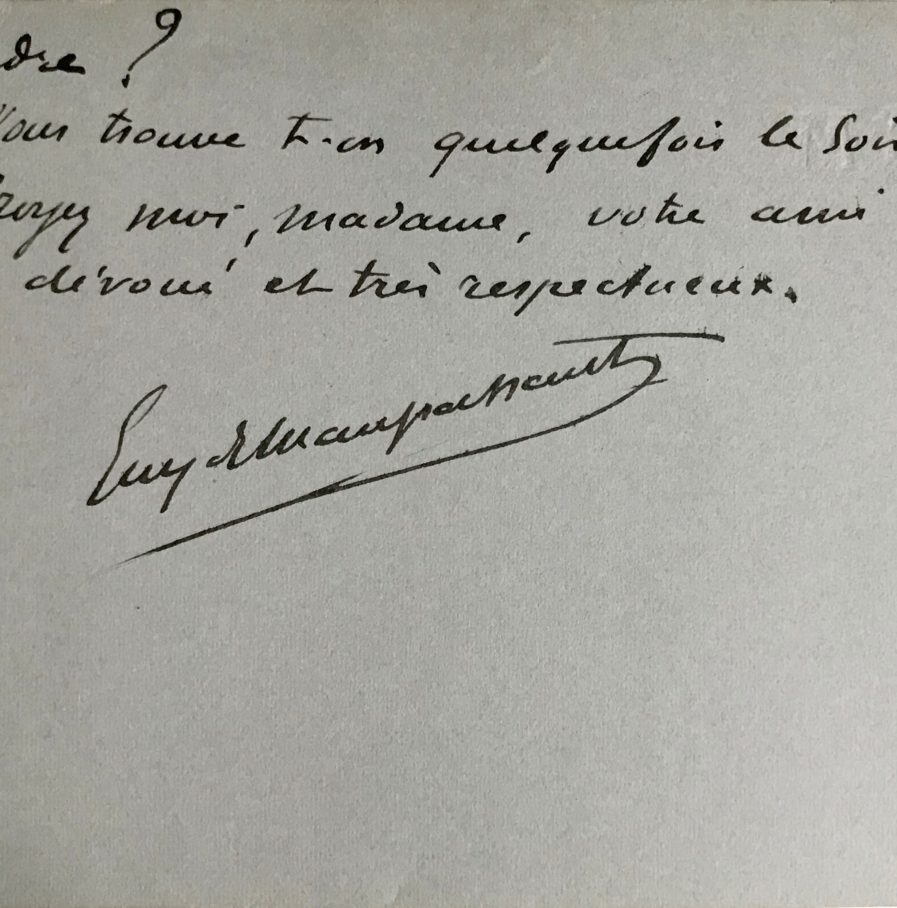 dre ?
Vous trouve t-on quelquefois le Soir
Croyez moi, madame, votre ami
dévoué et très respectueux.
Guy de Maupassant